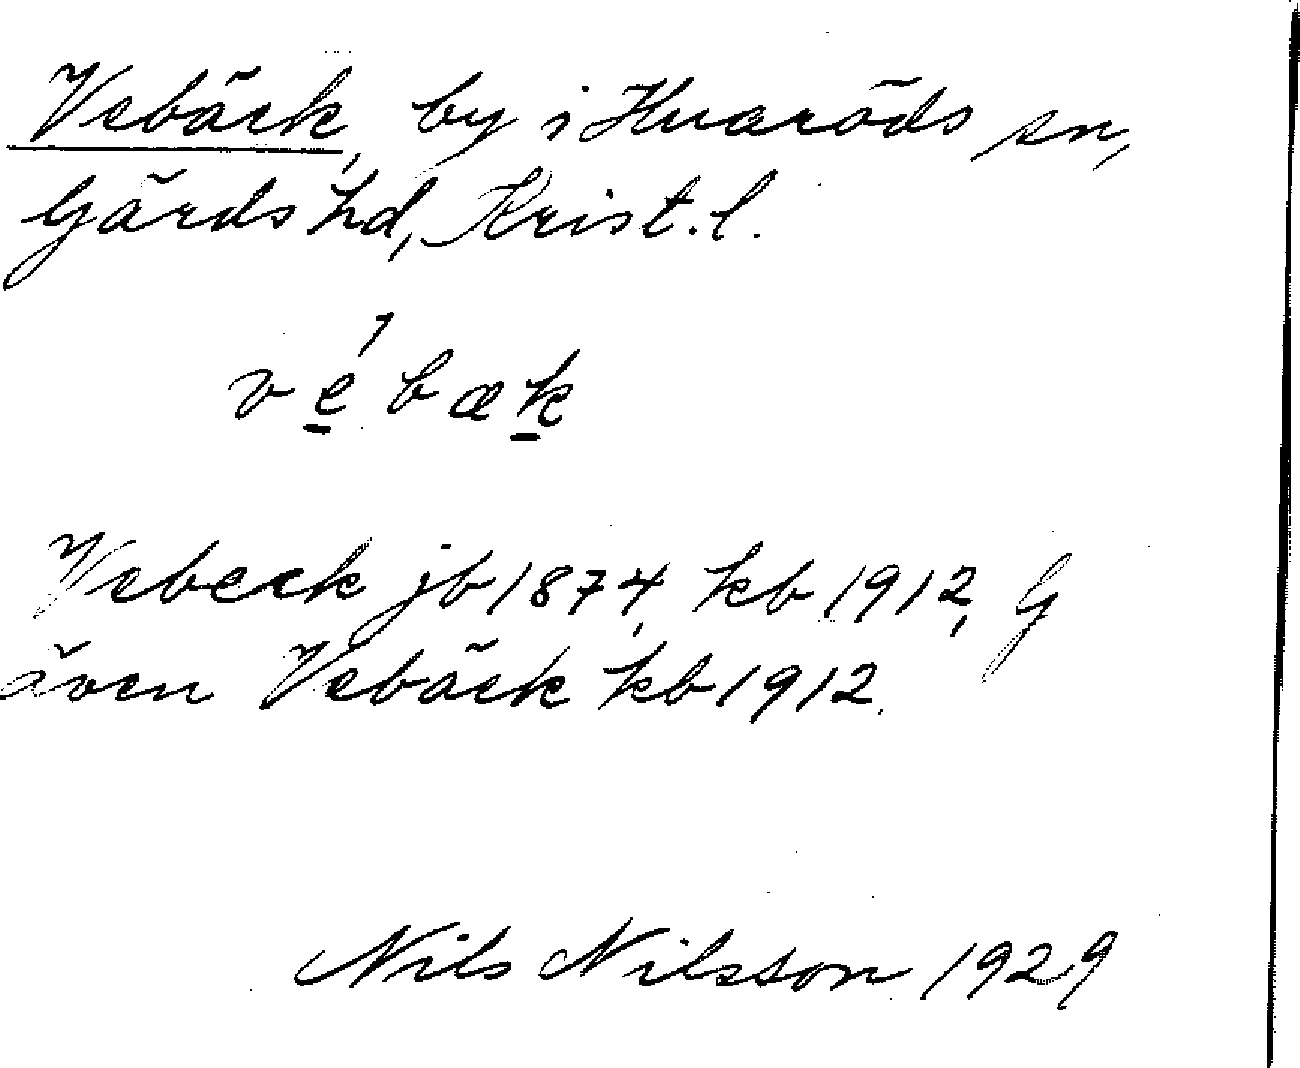 Vebäck, by i Huaröds sn,
Gärds hd, Krist. l.
vé́bæk
Vebeck jb 1874, kb 1912, G
även Vebäck kb 1912.
Nils Nilsson 1929